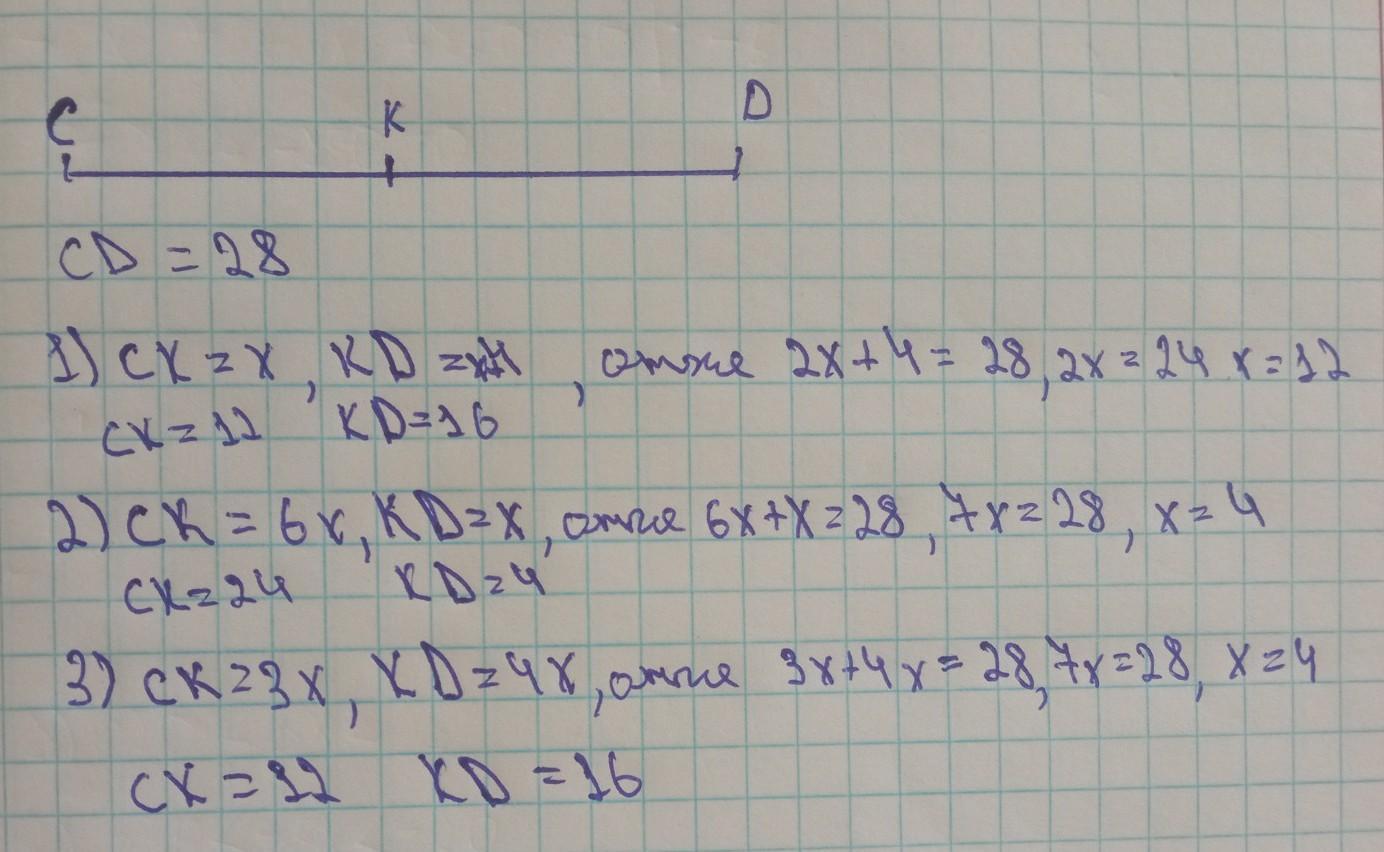 C K D
CD = 28
1) CK = x, KD = x+4, отже 2x + 4 = 28, 2x = 24 x = 12
CK = 12 KD = 16
2) CK = 6x, KD = x, отже 6x + x = 28, 7x = 28, x = 4
CK = 24 KD = 4
3) CK = 3x, KD = 4x, отже 3x + 4x = 28, 7x = 28, x = 4
CK = 12 KD = 16